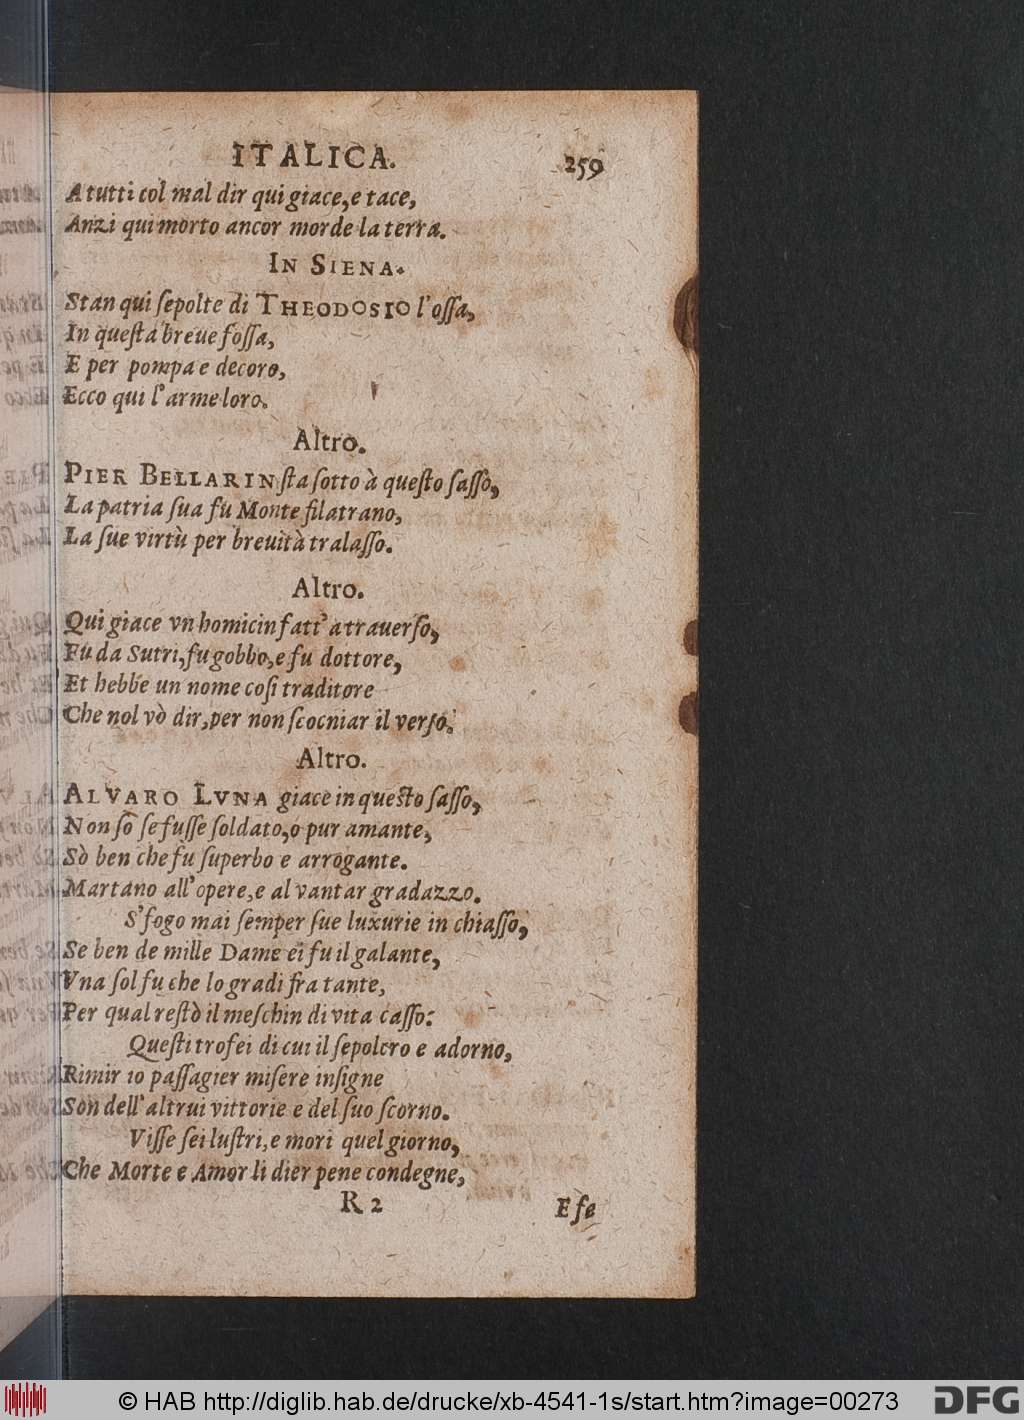 ITALICA. 259
A tutti col mal dir qui giace, e tace,
Anzi qui morto ancor morde la terra.
IN SIENA.
Stan qui ſepolte di THEODOSIO l'oſſa,
In queſta breue foſſa,
E per pompa e decoro,
Ecco qui l'arme loro.
Altro.
PIER BELLARIN ſta ſotto à queſto ſaſſo,
La patria ſua fu Monte filatrano,
La ſue virtù per breuità tralaſſo.
Altro.
Qui giace vn homicin fatt' a trauerſo,
Fu da Sutri, fu gobbo, e fu dottore,
Et hebbe un nome coſi traditore
Che nol vò dir, per non ſcocniar il verſo.
Altro.
ALVARO LVNA giace in queſto ſaſſo,
Non ſò ſe fuſſe ſoldato, o pur amante,
Sò ben che fu ſuperbo e arrogante.
Martano all'opere, e al vantar gradazzo.
S'fogo mai ſemper ſue luxurie in chiaſſo,
Se ben de mille Dame ei fu il galante,
Vna ſol fu che lo gradi fra tante,
Per qual reſtò il meſchin di vita caſſo:
Queſti trofei di cui il ſepolcro e adorno,
Rimir io paſſagier miſere inſigne
Son dell'altrui vittorie e del ſuo ſcorno.
Viſſe ſei luſtri, e mori quel giorno,
Che Morte e Amor li dier pene condegne,
R 2 E ſe
© HAB http://diglib.hab.de/drucke/xb-4541-1s/start.htm?image=00273 DFG